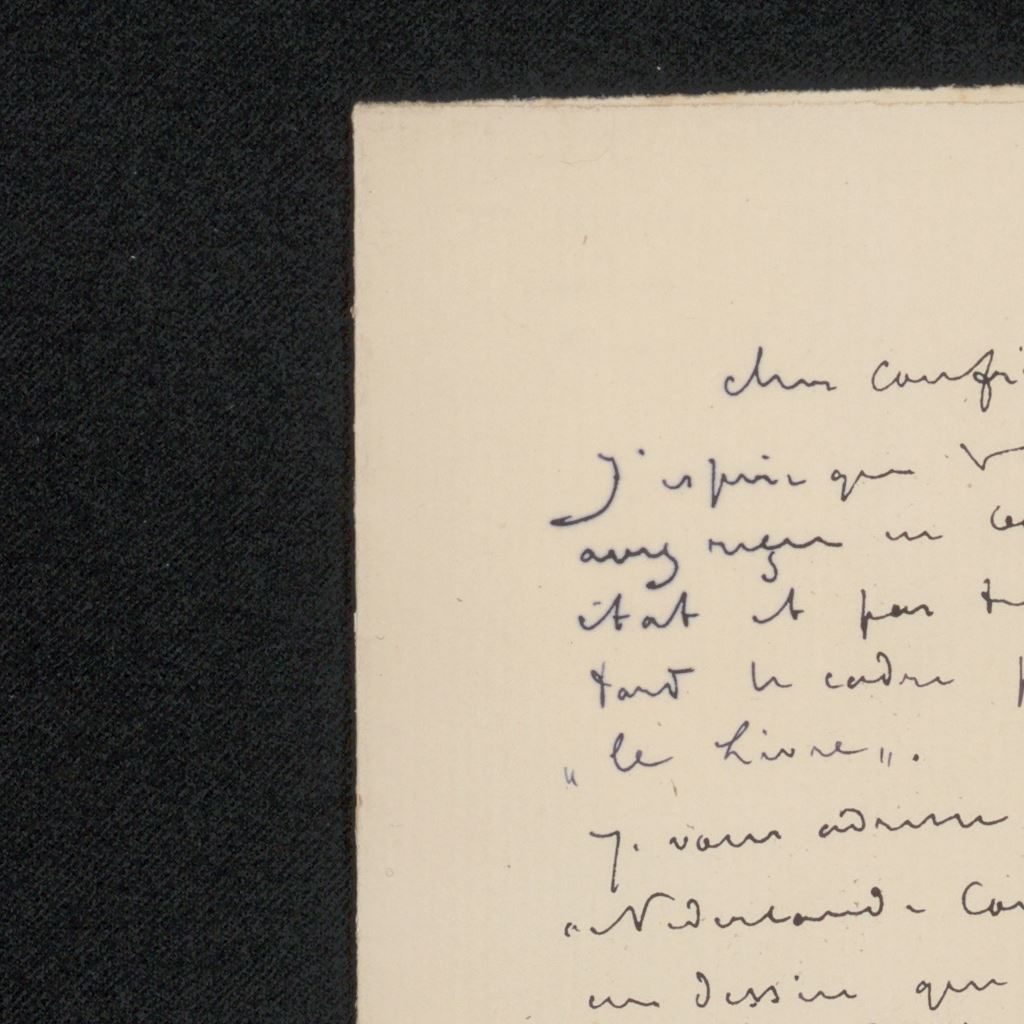 cher confrè
J'espère que v
avez reçu en
état et pas tr
tard le cadre p
„le Livre„.
Je vous adresse
„Nederland
un dessin que